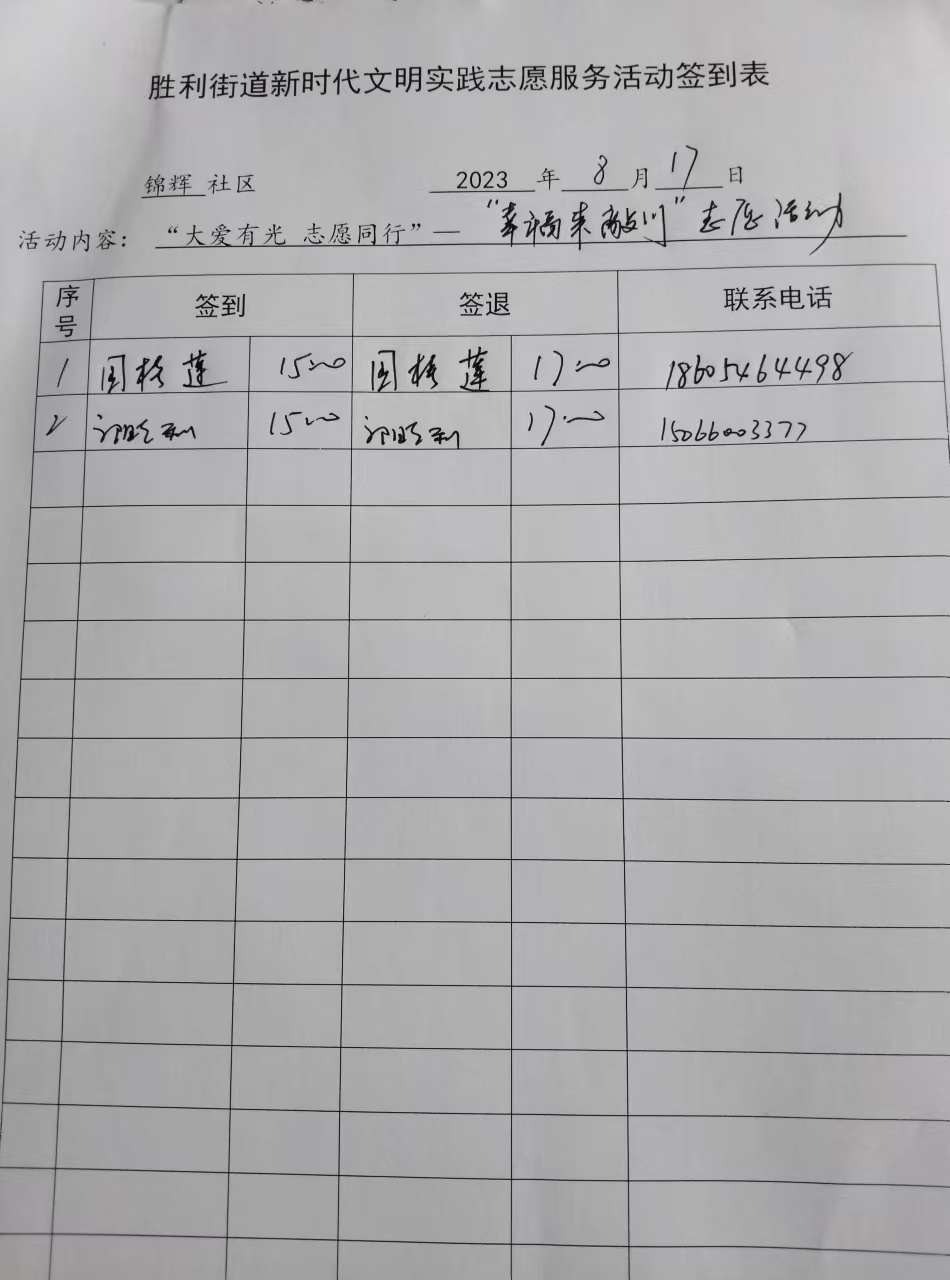 胜利街道新时代文明实践志愿服务活动签到表
锦辉 社区 2023 年 8 月 17 日
活动内容： “大爱有光 志愿同行”— “幸福来敲门”志愿活动
序号 签到 签退 联系电话
1 15:00 17:00 18605464498
2 15:00 17:00 15066003377